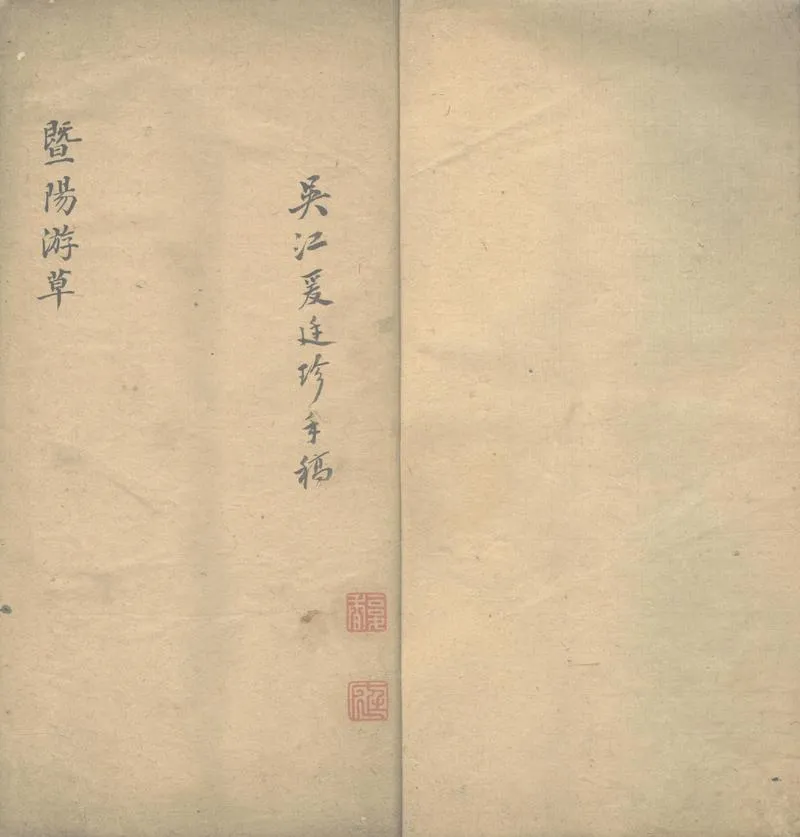 吳江爰廷珍手稿
暨陽游草